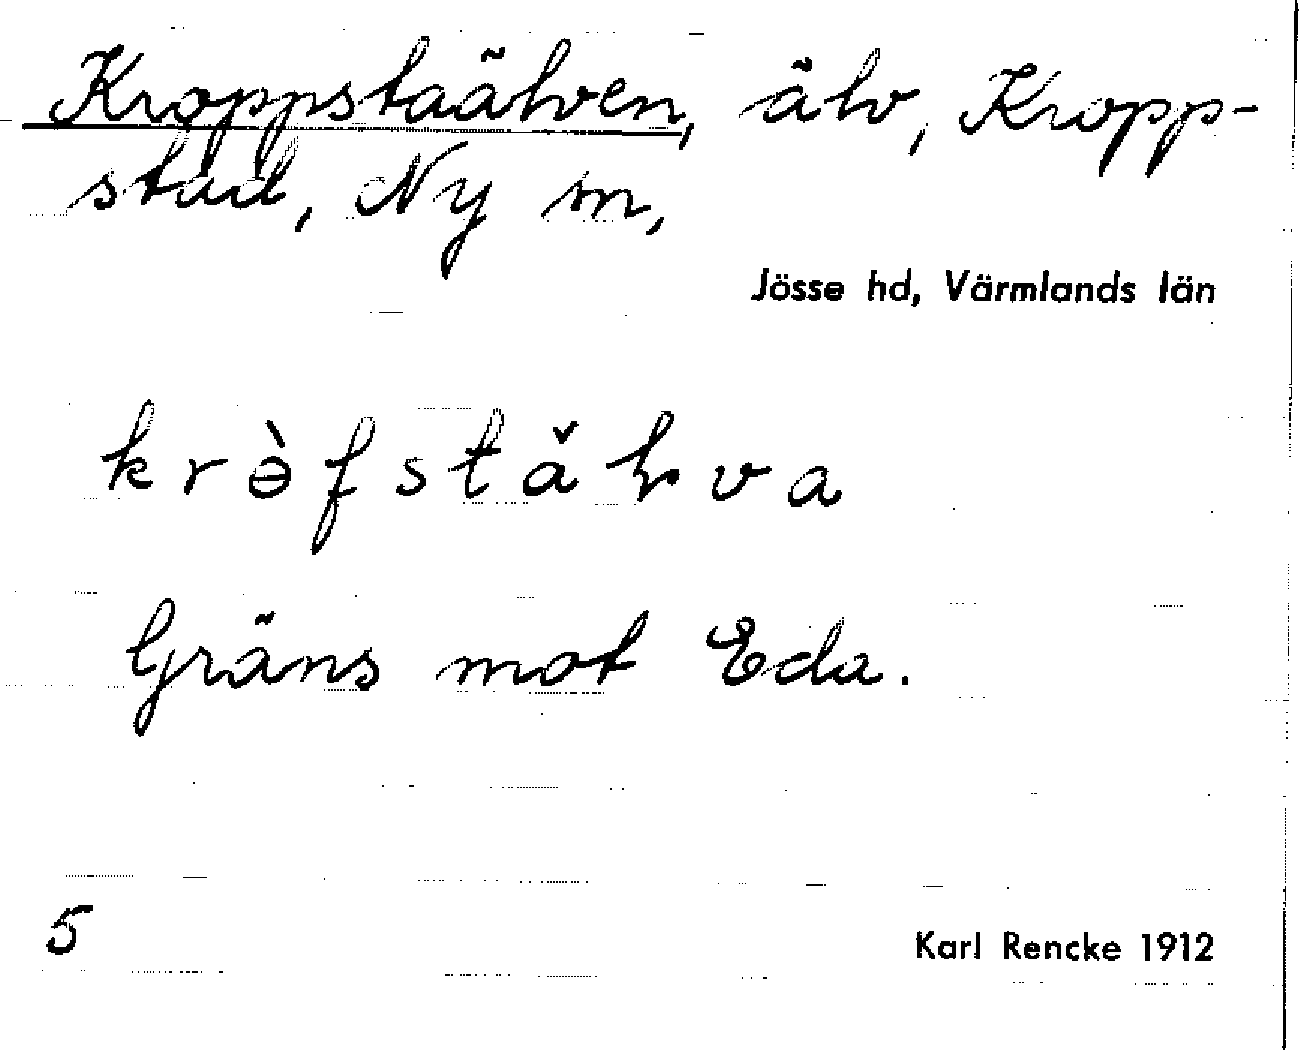 Kroppstaälven, älv, Kropp-
stad, Ny sn,
Jösse hd, Värmlands län
krɵ̀fstǎɫva
Gräns mot Eda.
5
Karl Rencke 1912